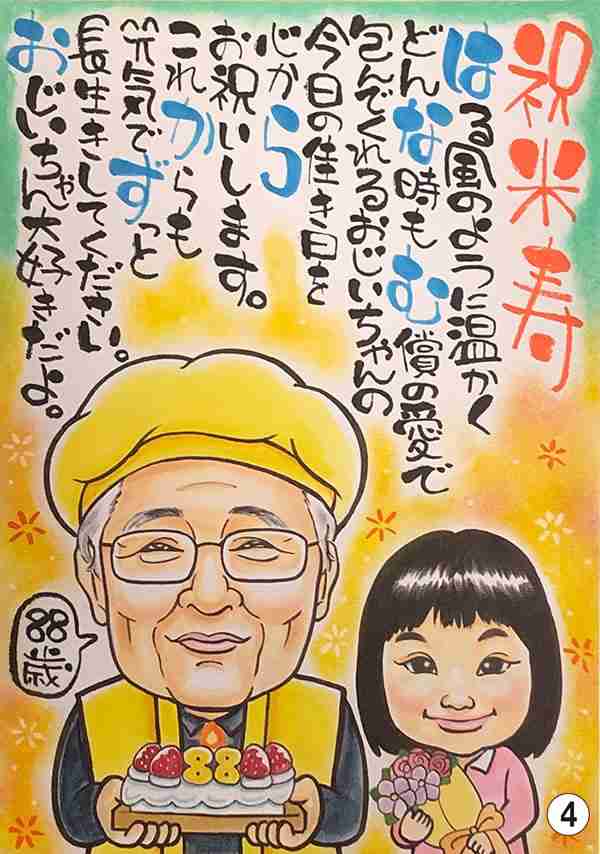 祝米寿
はる風のように温かく
どんな時もむ償の愛で
包んでくれるおじいちゃんの
今日の佳き日を
心から
お祝いします。
これからも
笑気でずっと
長生きしてください。
おじいちゃん大好きだよ。
88歳
88
4